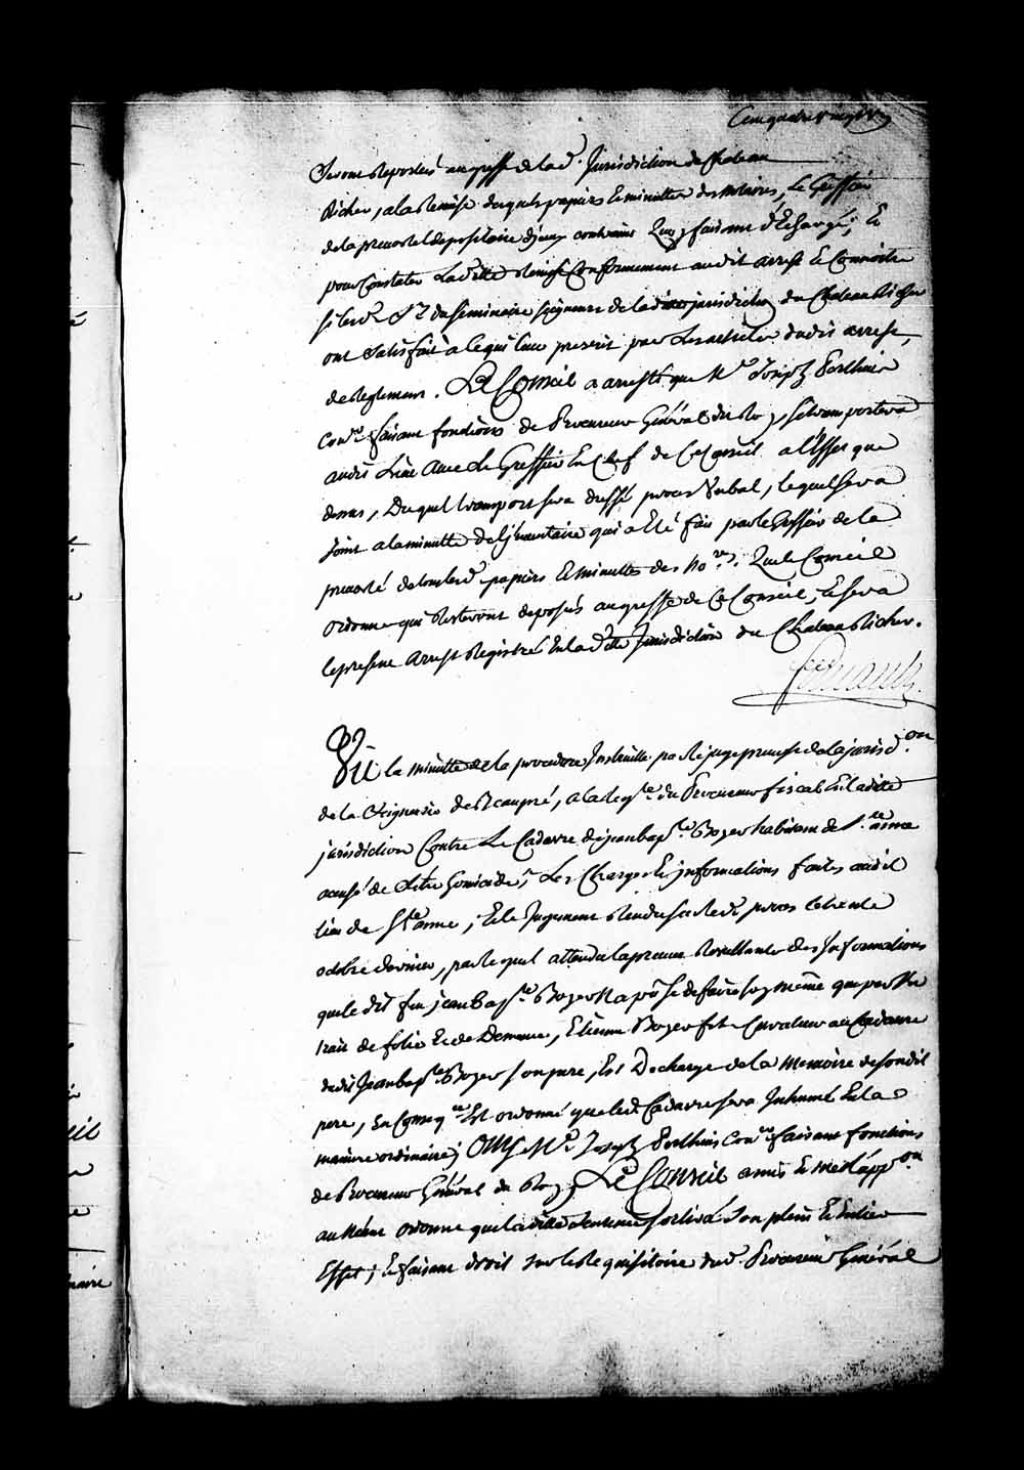 Cent quatre vingt
Seront Reportés au greffe de lad.e Jurisdiction du Chateau
Richer, a la Remise desquels papiers Et minuttes des Notaires, Le Greffier
de la prevosté depositaire d'jceux contraint quoy faisant déchargé; Et
pour Constater Lad.e Remise Conformement audit arrest Et Connoitre
si les d. S.rs du Seminaire seigneurs de lad. jurisdiction du Chateau Richer
ont Satisfait a Ce qui leur prescrit par Les articles dudit arrest,
de Reglement. Le Conseil a arresté que M.e Joseph Perthuis
Con.er faisant fonctions de Procureur Général du Roy, se transportera
audit Lieu avec Le Greffier En Chef de Ce Conseil a l'Effet que
dessus, Duquel transport sera dressé procès Verbal, lequel sera
Joint a la minutte de l'jnventaire qui a Eté fait par le Greffier de la
prevosté de tous les d. papiers Et minuttes des No.res Que le Conseil
ordonne qui Resteront deposés au greffe de Ce Conseil, Et sera
le present Arrest Registré En lad.e Jurisdiction du Chateau Richer.
Vû la minutte de la procedure Instruitte par le juge prevost de la jurisd.on
de la Seigneurie de Beaupré, a la Req.te du Procureur fiscal En ladite
jurisdiction Contre Le Cadavre de jean bap.te Boyer habitant de S.te anne
accusé de s'Etre homicidé; Les Charges Et jnformations faites audit
lieu de S.te anne; Et le Jugement Rendu sur led. procès le trente
octobre dernier, par lequel attendu la preuve Resultante des Informations
que le dit feu jean bap.te Boyer N'a pû se defaire soy même que par Un
trait de folie Et de Demence, Etienne Boyer fils Curateur au Cadavre
dudit Jean bap.te Boyer son pere, Est Dechargé de la memoire de sondit
pere, En Conseq.ce Est ordonné que led. Cadavre sera Inhumé En la
maniere ordinaire; OUY M.e Joseph Perthuis Con.er faisant fonctions
de Procureur Général du Roy; Le Conseil a mis Et met l'app.on
au Néant ordonne que ladite Sentence sortira Son plein Et Entier
Effet; Et faisant droit sur le Requisitoire dud. Procureur Général